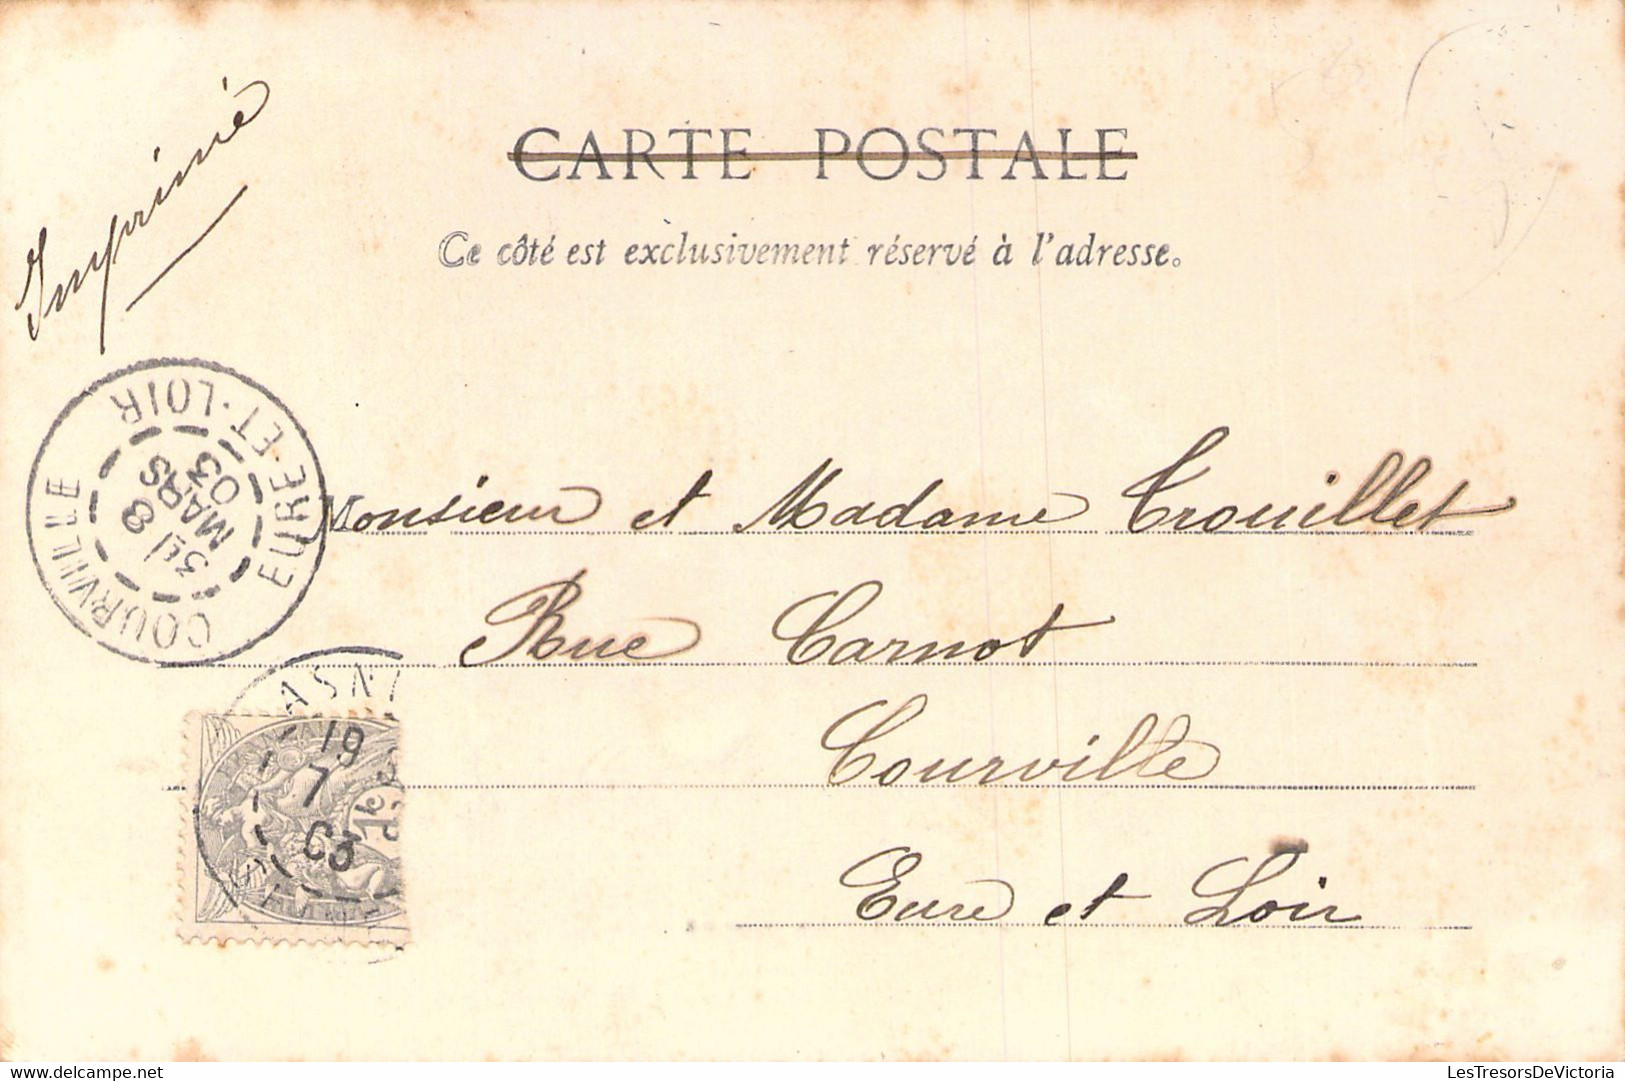 Imprimé
CARTE POSTALE
Ce côté est exclusivement réservé à l'adresse.
COURVILLE
EURE-ET-LOIR
8
MARS
03
Monsieur et Madame Trouillet
Rue Carnot
Courville
Eure et Loir
ASN
19
7
03
1c
delcampe.net
LesTresorsDeVictoria